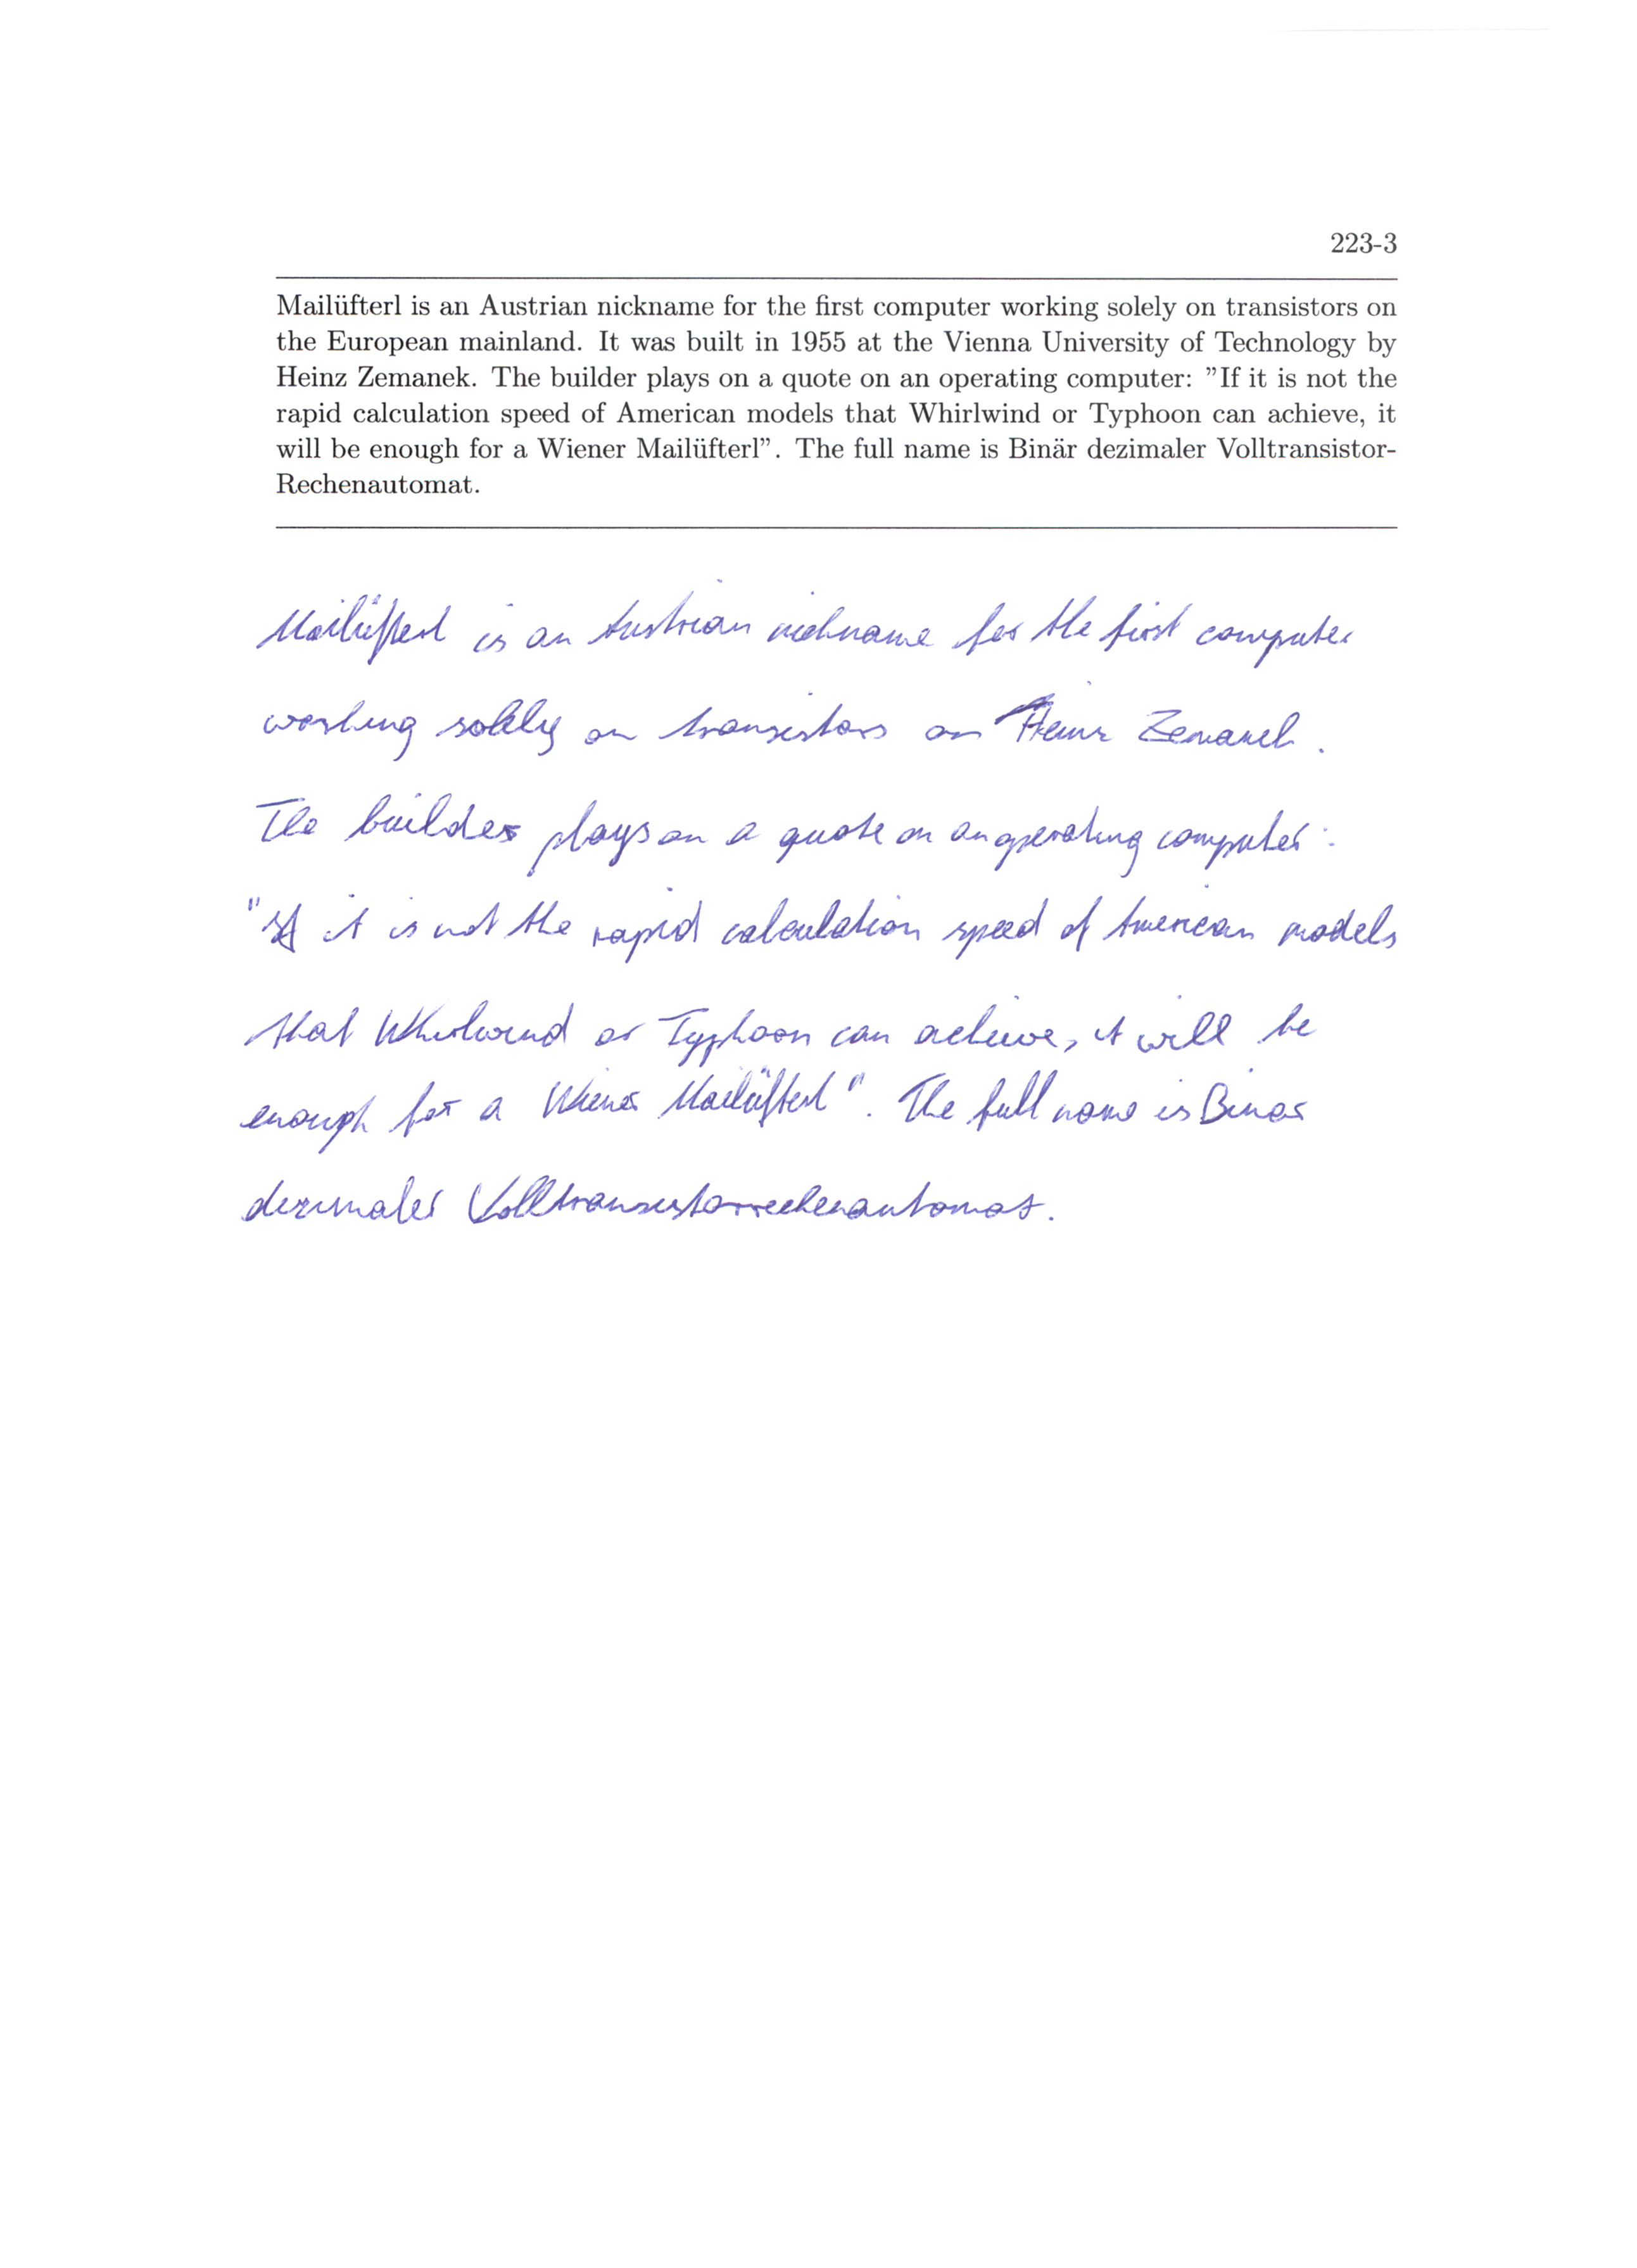 223-3
Mailüfterl is an Austrian nickname for the first computer working solely on transistors on
the European mainland. It was built in 1955 at the Vienna University of Technology by
Heinz Zemanek. The builder plays on a quote on an operating computer: ”If it is not the
rapid calculation speed of American models that Whirlwind or Typhoon can achieve, it
will be enough for a Wiener Mailüfterl”. The full name is Binär dezimaler Volltransistor-
Rechenautomat.
Mailüfterl is an Austrian nickname for the first computer
working solely on transistors on Heinz Zemanek.
The builder plays on a quote on an operating computer:
"If it is not the rapid calculation speed of American models
that Whirlwind or Typhoon can achieve, it will be
enough for a Wiener Mailüfterl". The full name is Binar
dezimaler Volltransistorrechenautomat.